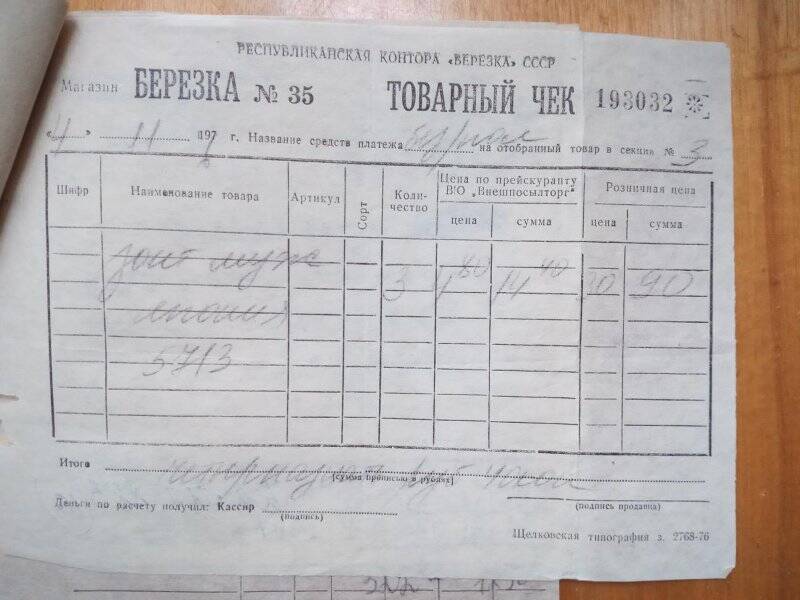 РЕСПУБЛИКАНСКАЯ КОНТОРА «БЕРЕЗКА» СССР
Магазин БЕРЕЗКА № 35 ТОВАРНЫЙ ЧЕК 193032
«4» 11 197 г. Название средств платежа на отобранный товар в секции № 3
Шифр Наименование товара Артикул Сорт Количество Цена по прейскуранту В/О „Внешпосылторг" Розничная цена
цена сумма цена сумма
зонт муж
3 4 80 14 40 30 90
япония
5713
Итого четырнадцать руб 40 коп
[сумма прописью в рублях]
Деньги по расчету получил: Кассир
(подпись) (подпись продавца)
Щелковская типография з. 2768-76